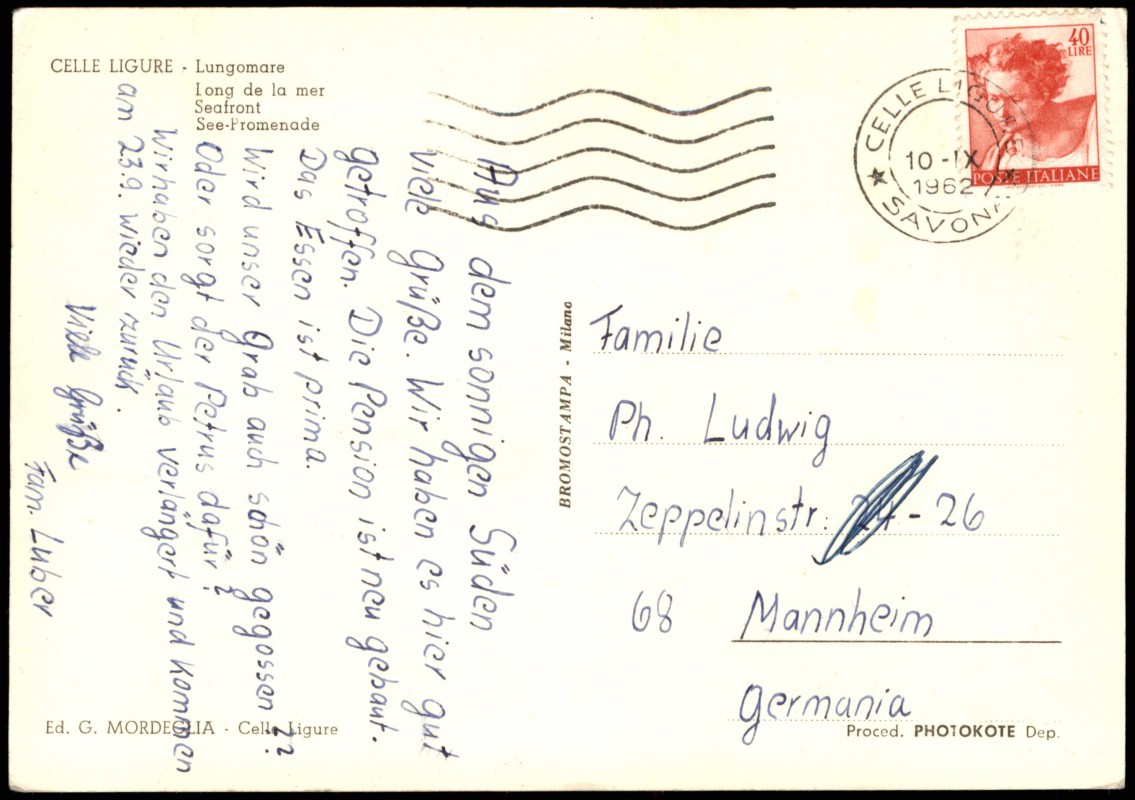 CELLE LIGURE - Lungomare
Long de la mer
Seafront
See-Promenade
Aus dem sonnigen Süden
viele Grüße. Wir haben es hier gut
getroffen. Die Pension ist neu gebaut.
Das Essen ist prima.
Wird unser Grab auch schön gegossen??
Oder sorgt der Petrus dafür?
Wir haben den Urlaub verlängert und kommen
am 23.9. wieder zurück.
Viele Grüße
Fam. Luber
Ed. G. MORDEGLIA - Celle Ligure
BROMOSTAMPA - Milano
40
LIRE
POSTE ITALIANE
CELLE LIGURE
10-IX
1962
SAVONA
Familie
Ph. Ludwig
Zeppelinstr: 24-26
68 Mannheim
Germania
Proced. PHOTOKOTE Dep.